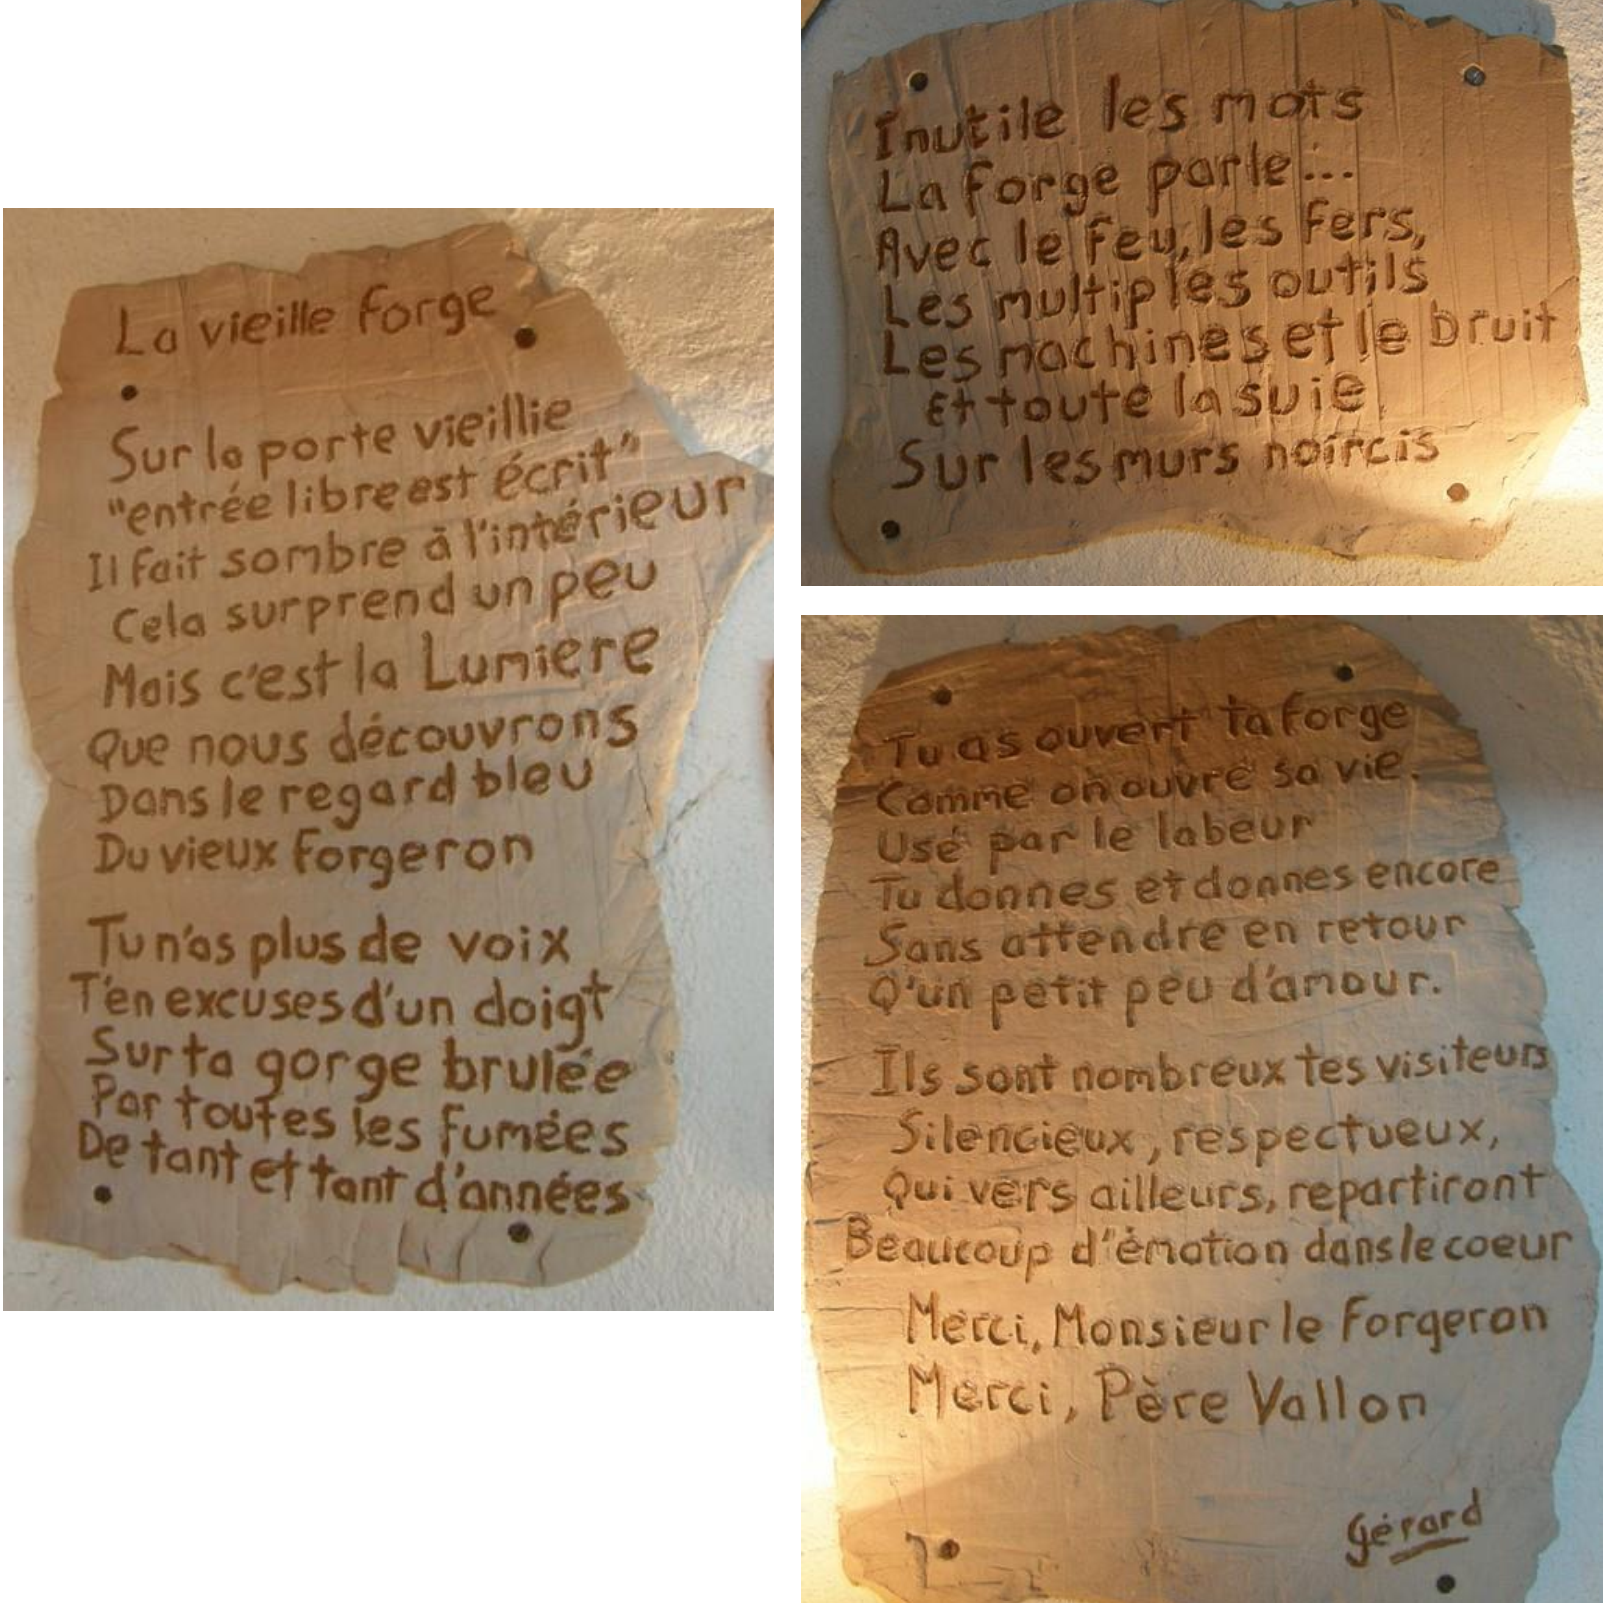 La vieille forge
Sur la porte vieillie
"entrée libre est écrit"
Il fait sombre à l'intérieur
Cela surprend un peu
Mais c'est la Lumiere
Que nous découvrons
Dans le regard bleu
Du vieux forgeron
Tu n'as plus de voix
T'en excuses d'un doigt
Sur ta gorge brulée
Par toutes les fumées
De tant et tant d'années
Inutile les mots
La forge parle...
Avec le feu, les fers,
Les multiples outils
Les machines et le bruit
Et toute la suie
Sur les murs noircis
Tu as ouvert ta forge
Comme on ouvre sa vie.
Usé par le labeur
Tu donnes et donnes encore
Sans attendre en retour
Q'un petit peu d'amour.
Ils sont nombreux tes visiteurs
Silencieux, respectueux,
Qui vers ailleurs, repartiront
Beaucoup d'émotion dans le coeur
Merci, Monsieur le Forgeron
Merci, Père Vallon
Gérard